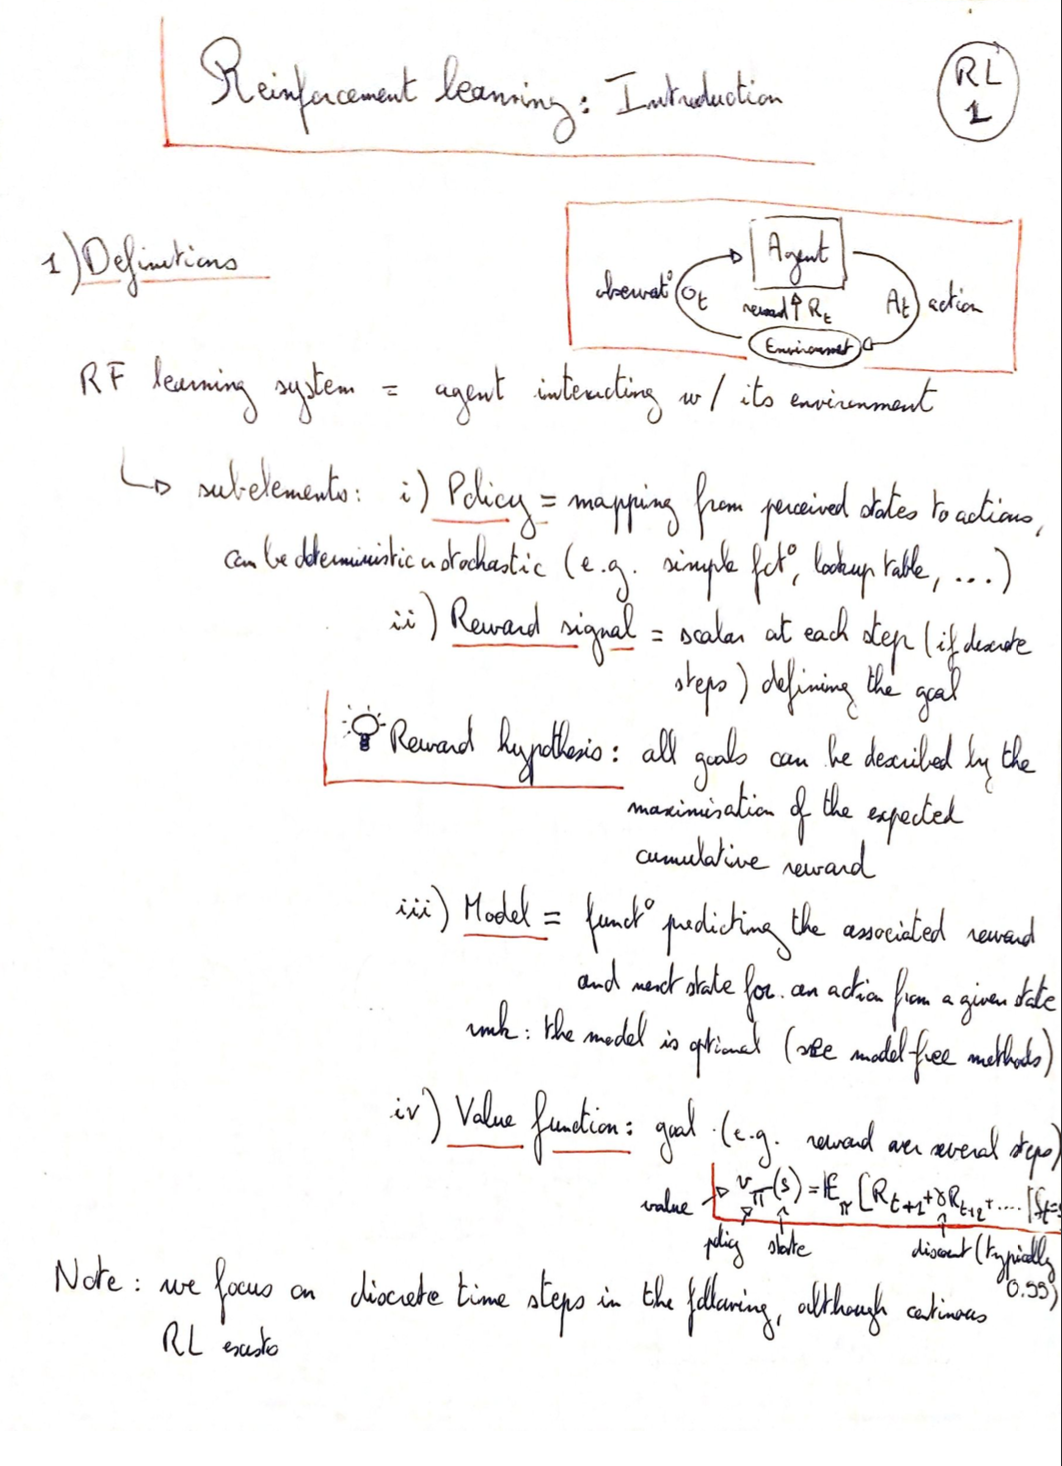 Reinforcement learning: Introduction
RL
1
1) Definitions
Agent
observat° O_t
reward R_t
A_t action
Environment
RF learning system = agent interacting w/ its environment
subelements: i) Policy = mapping from perceived states to actions,
can be deterministic or stochastic (e.g. simple fct°, lookup table, ...)
ii) Reward signal = scalar at each step (if discrete
steps) defining the goal
Reward hypothesis: all goals can be described by the
maximisation of the expected
cumulative reward
iii) Model = funct° predicting the associated reward
and next state for an action from a given state
rmk: the model is optional (see model-free methods)
iv) Value function: goal (e.g. reward over several steps)
value v_π(s) = E_π [R_{t+1} + γR_{t+2} + .... | S_t=s
policy state discount (typically
0.99)
Note: we focus on discrete time steps in the following, although continuous
RL exists